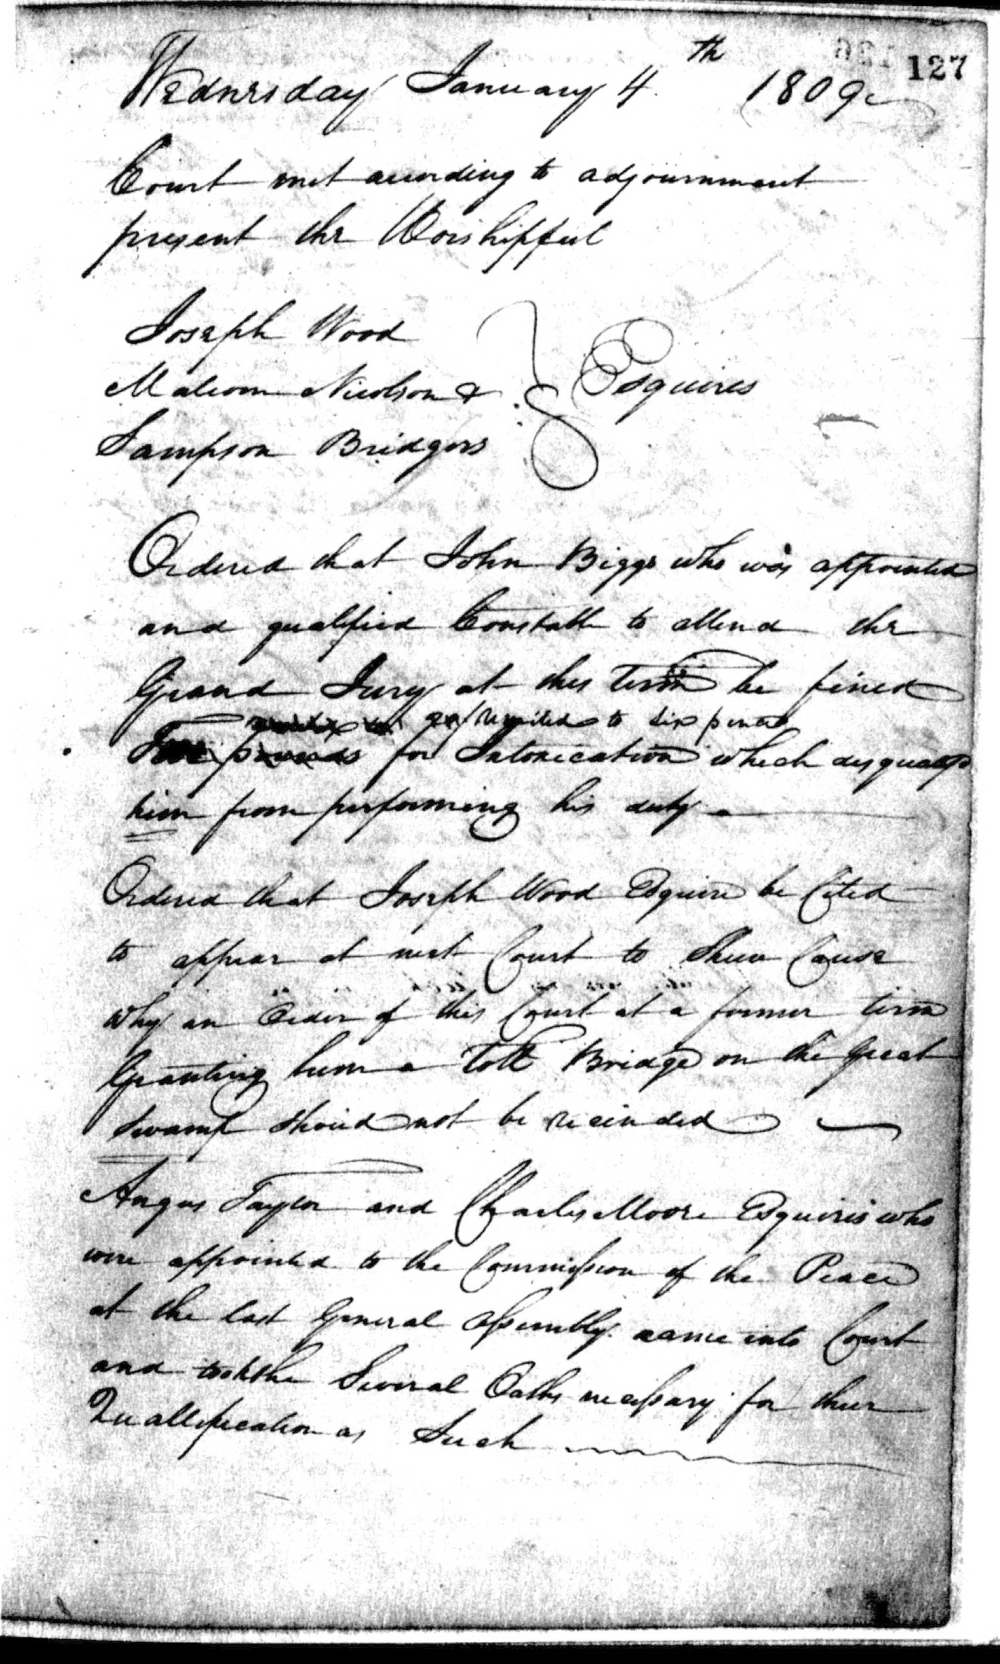 127
Wednesday January 4th 1809
Court met according to adjournment
present the Worshipful
Joseph Wood
Malcom Nicolson & Esquires
Sampson Bridgers
Ordered that John Biggs who was appointed
and qualified Constable to attend the
Grand Jury at this term be fined
remited to six pence
pounds for Intoxication which disqualifd
him from performing his duty
Ordered that Joseph Wood Esquire be Cited
to appear at next Court to Shew Cause
why an Order of this Court at a former term
Granting him a Toll Bridge on the great
Swamp should not be recinded
Angus Taylor and Charles Moore Esquires who
were appointed to the Commission of the Peace
at the last General Assembly came into Court
and took the Several Oaths necessary for their
Quallification as Such